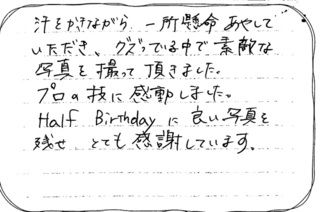 汗をかきながら 一所懸命 あやして
いただき、グズっている中で素敵な
写真を撮って頂きました。
プロの技に感動しました。
Half Birthday に良い写真を
残せ とても感謝しています。